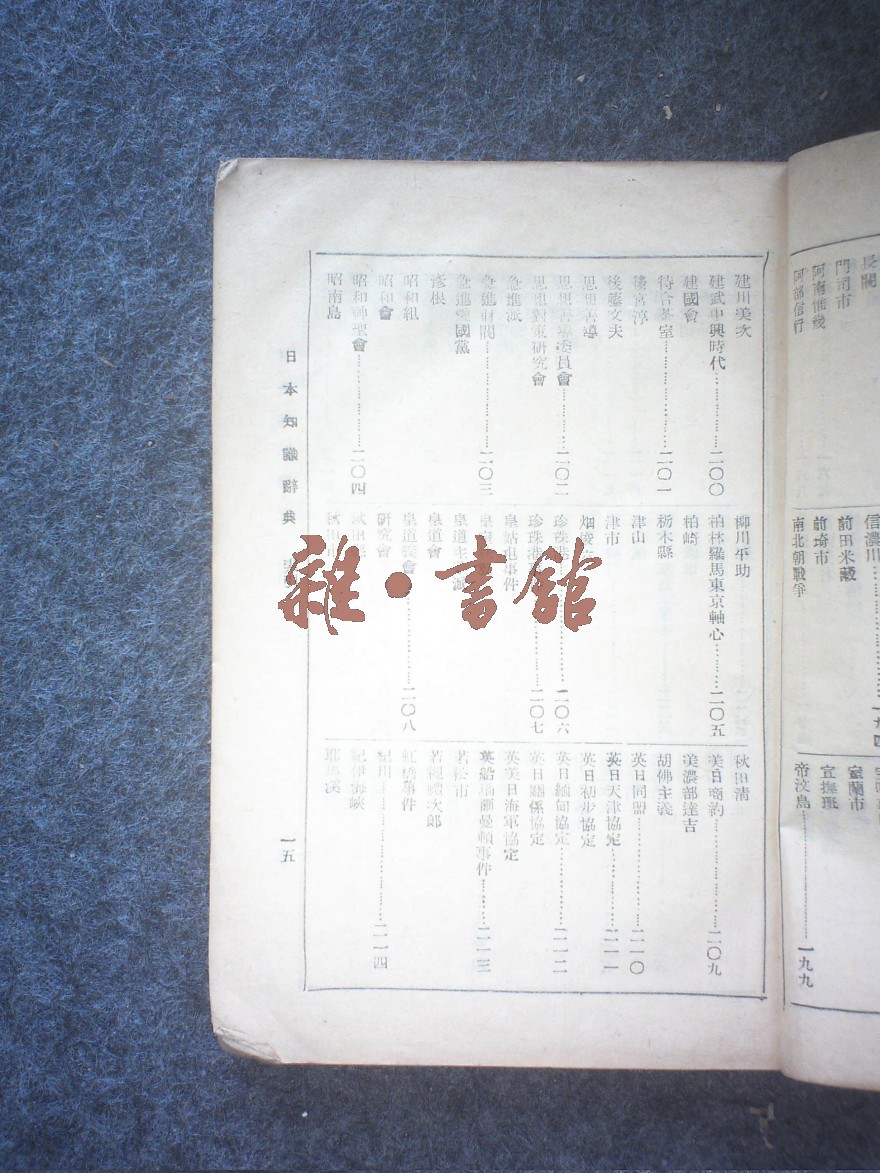 長閥
門司市
阿南惟幾
阿部信行
信濃川………一九四
前田米藏
前埼市
南北朝戰爭
室蘭市
宣撫班
帝汶島………一九九
建川美次
建武中興時代………二〇〇
建國會
待合茶室………二〇一
後宮淳
後藤文夫
思想善導
思想善導委員會………二〇二
思想對策研究會
急進派
急進財閥………二〇三
急進愛國黨
彥根
昭和組
昭和會
昭和神聖會………二〇四
昭南島
柳川平助
柏林羅馬東京軸心………二〇五
柏崎
栃木縣
津山
津市
畑俊
珍珠港………二〇六
珍珠港………二〇七
皇姑屯事件
皇道
皇道主
皇道會
皇道會………二〇八
研究會
秋田
秋田
秋田清
美日商約………二〇九
美濃部達吉
胡佛主義
英日同盟………二一〇
英日天津協定………二一一
英日初步協定
英日緬甸協定………二一二
英日關係協定
英美日海軍協定
英船瑙爾曼頓事件………二一三
若松市
若槻禮次郎
虹橋事件
紀川………二一四
紀伊海峽
耶馬溪
日本知識辭典
一五
雜·書館